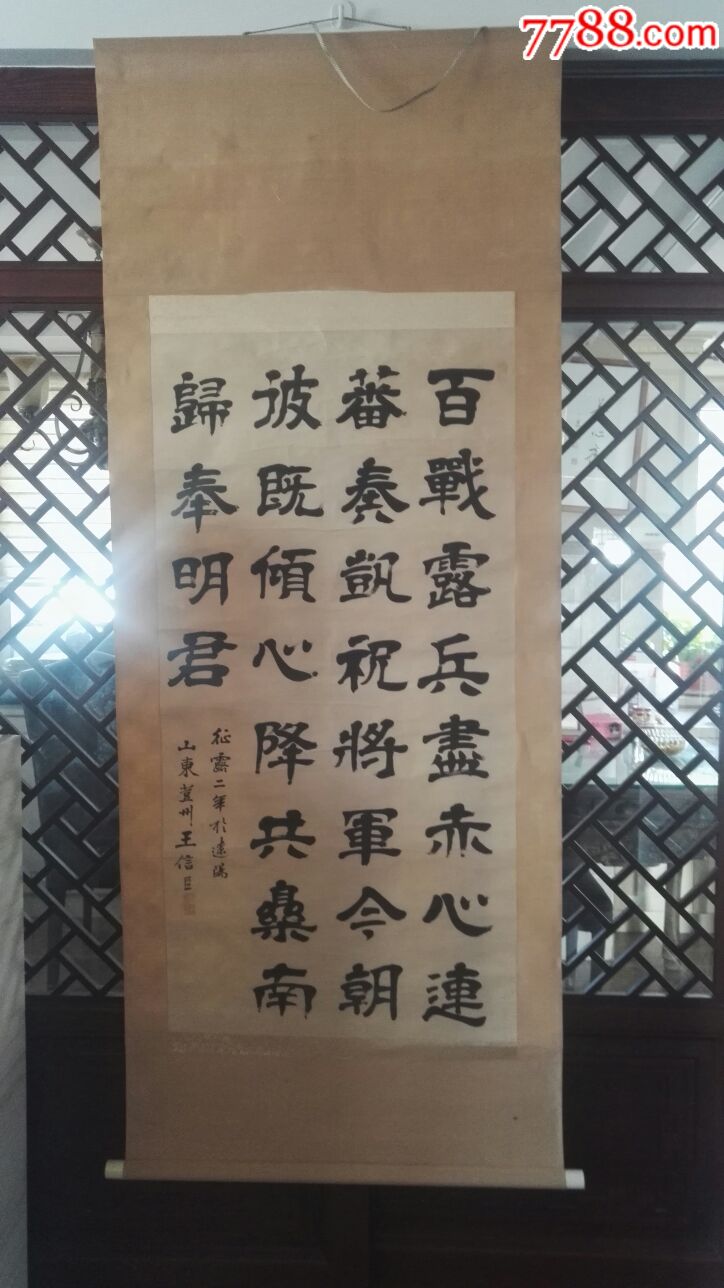 7788.com
百戰露兵盡赤心連
蕃奏凱祝將軍今朝
彼既傾心降共桑南
歸奉明君
征露二年於遼陽
山東萱州王信臣